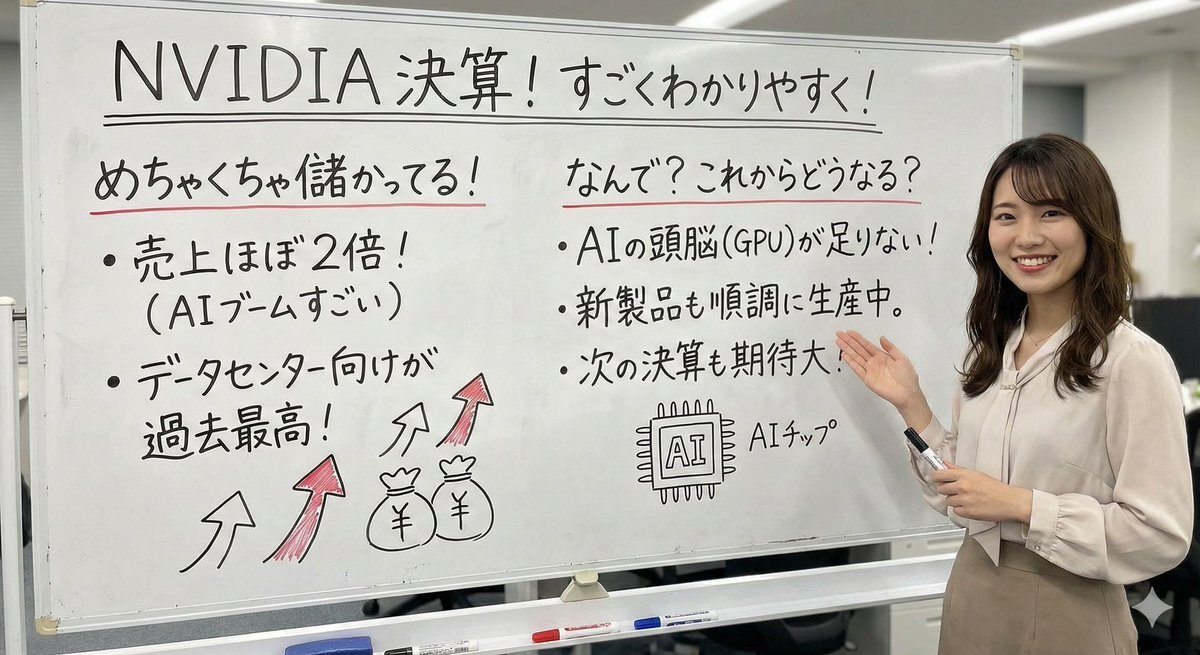 NVIDIA 決算! すごくわかりやすく!
めちゃくちゃ儲かってる!
・売上ほぼ2倍!
(AIブームすごい)
・データセンター向けが
過去最高!
¥ ¥
なんで? これからどうなる?
・AIの頭脳(GPU)が足りない!
・新製品も順調に生産中。
・次の決算も期待大!
AI AIチップ